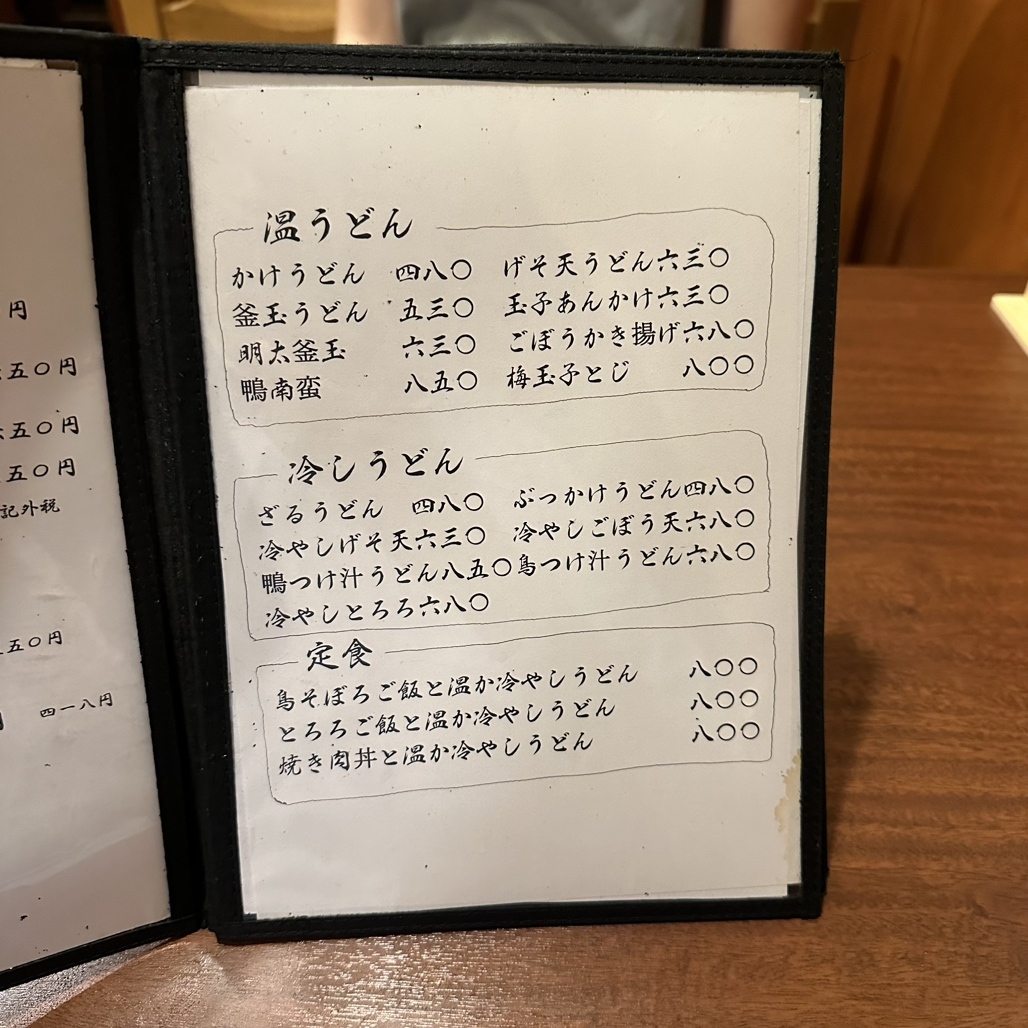 円
五〇円
五〇円
五〇円
記外税
五〇円
四一八円
温うどん
かけうどん 四八〇 げそ天うどん六三〇
釜玉うどん 五三〇 玉子あんかけ六三〇
明太釜玉 六三〇 ごぼうかき揚げ六八〇
鴨南蛮 八五〇 梅玉子とじ 八〇〇
冷しうどん
ざるうどん 四八〇 ぶっかけうどん四八〇
冷やしげそ天六三〇 冷やしごぼう天六八〇
鴨つけ汁うどん八五〇 鳥つけ汁うどん六八〇
冷やしとろろ六八〇
定食
鳥そぼろご飯と温か冷やしうどん 八〇〇
とろろご飯と温か冷やしうどん 八〇〇
焼き肉丼と温か冷やしうどん 八〇〇